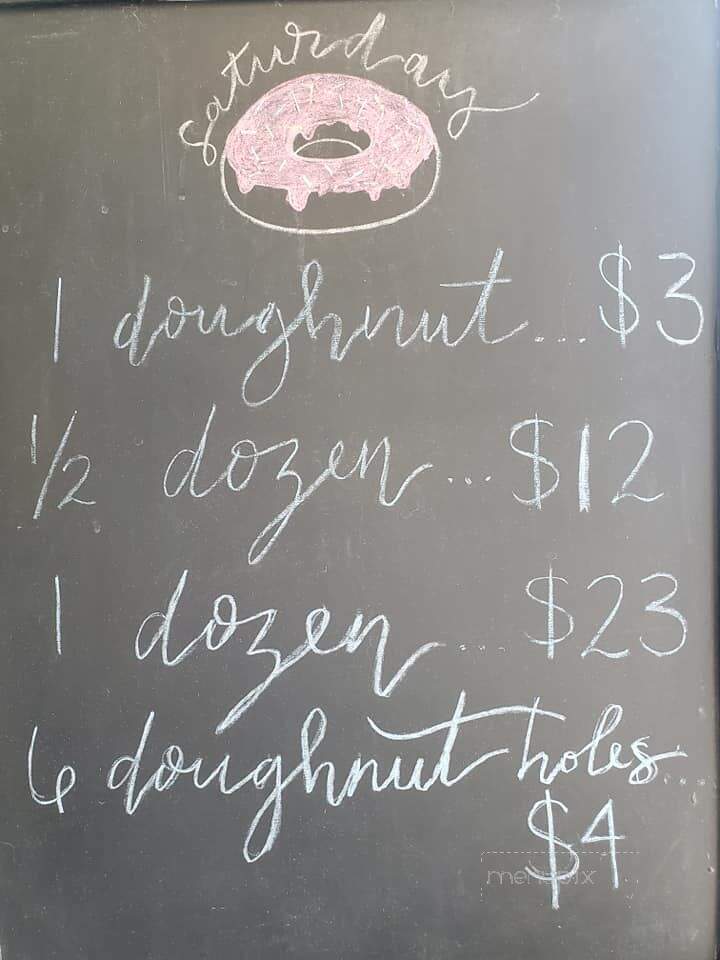 saturday
1 doughnut... $3
1/2 dozen... $12
1 dozen... $23
6 doughnut holes...
$4
menupix